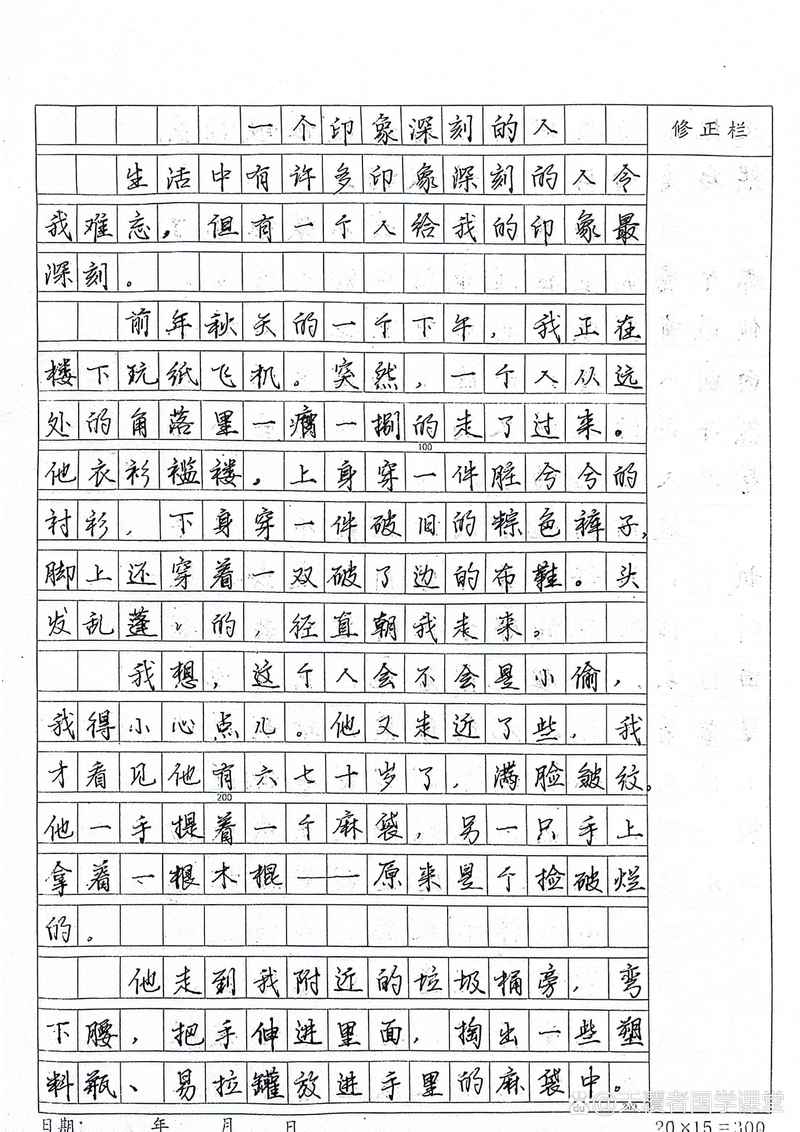 一个印象深刻的人
修正栏
生活中有许多印象深刻的人令
我难忘，但有一个人给我的印象最
深刻。
前年秋天的一个下午，我正在
楼下玩纸飞机。突然，一个人从远
处的角落里一瘸一拐的走了过来。
100
他衣衫褴褛。上身穿一件脏兮兮的
衬衫，下身穿一件破旧的棕色裤子，
脚上还穿着一双破了边的布鞋。头
发乱蓬、的，径直朝我走来。
我想，这个人会不会是小偷，
我得小心点儿。他又走近了些，我
才看见他有六七十岁了，满脸皱纹。
200
他一手提着一个麻袋，另一只手上
拿着一根木棍——原来是个捡破烂
的。
他走到我附近的垃圾桶旁，弯
下腰，把手伸进里面，掏出一些塑
料瓶、易拉罐放进手里的麻袋中。
日期： 年 月 日
20×15=300